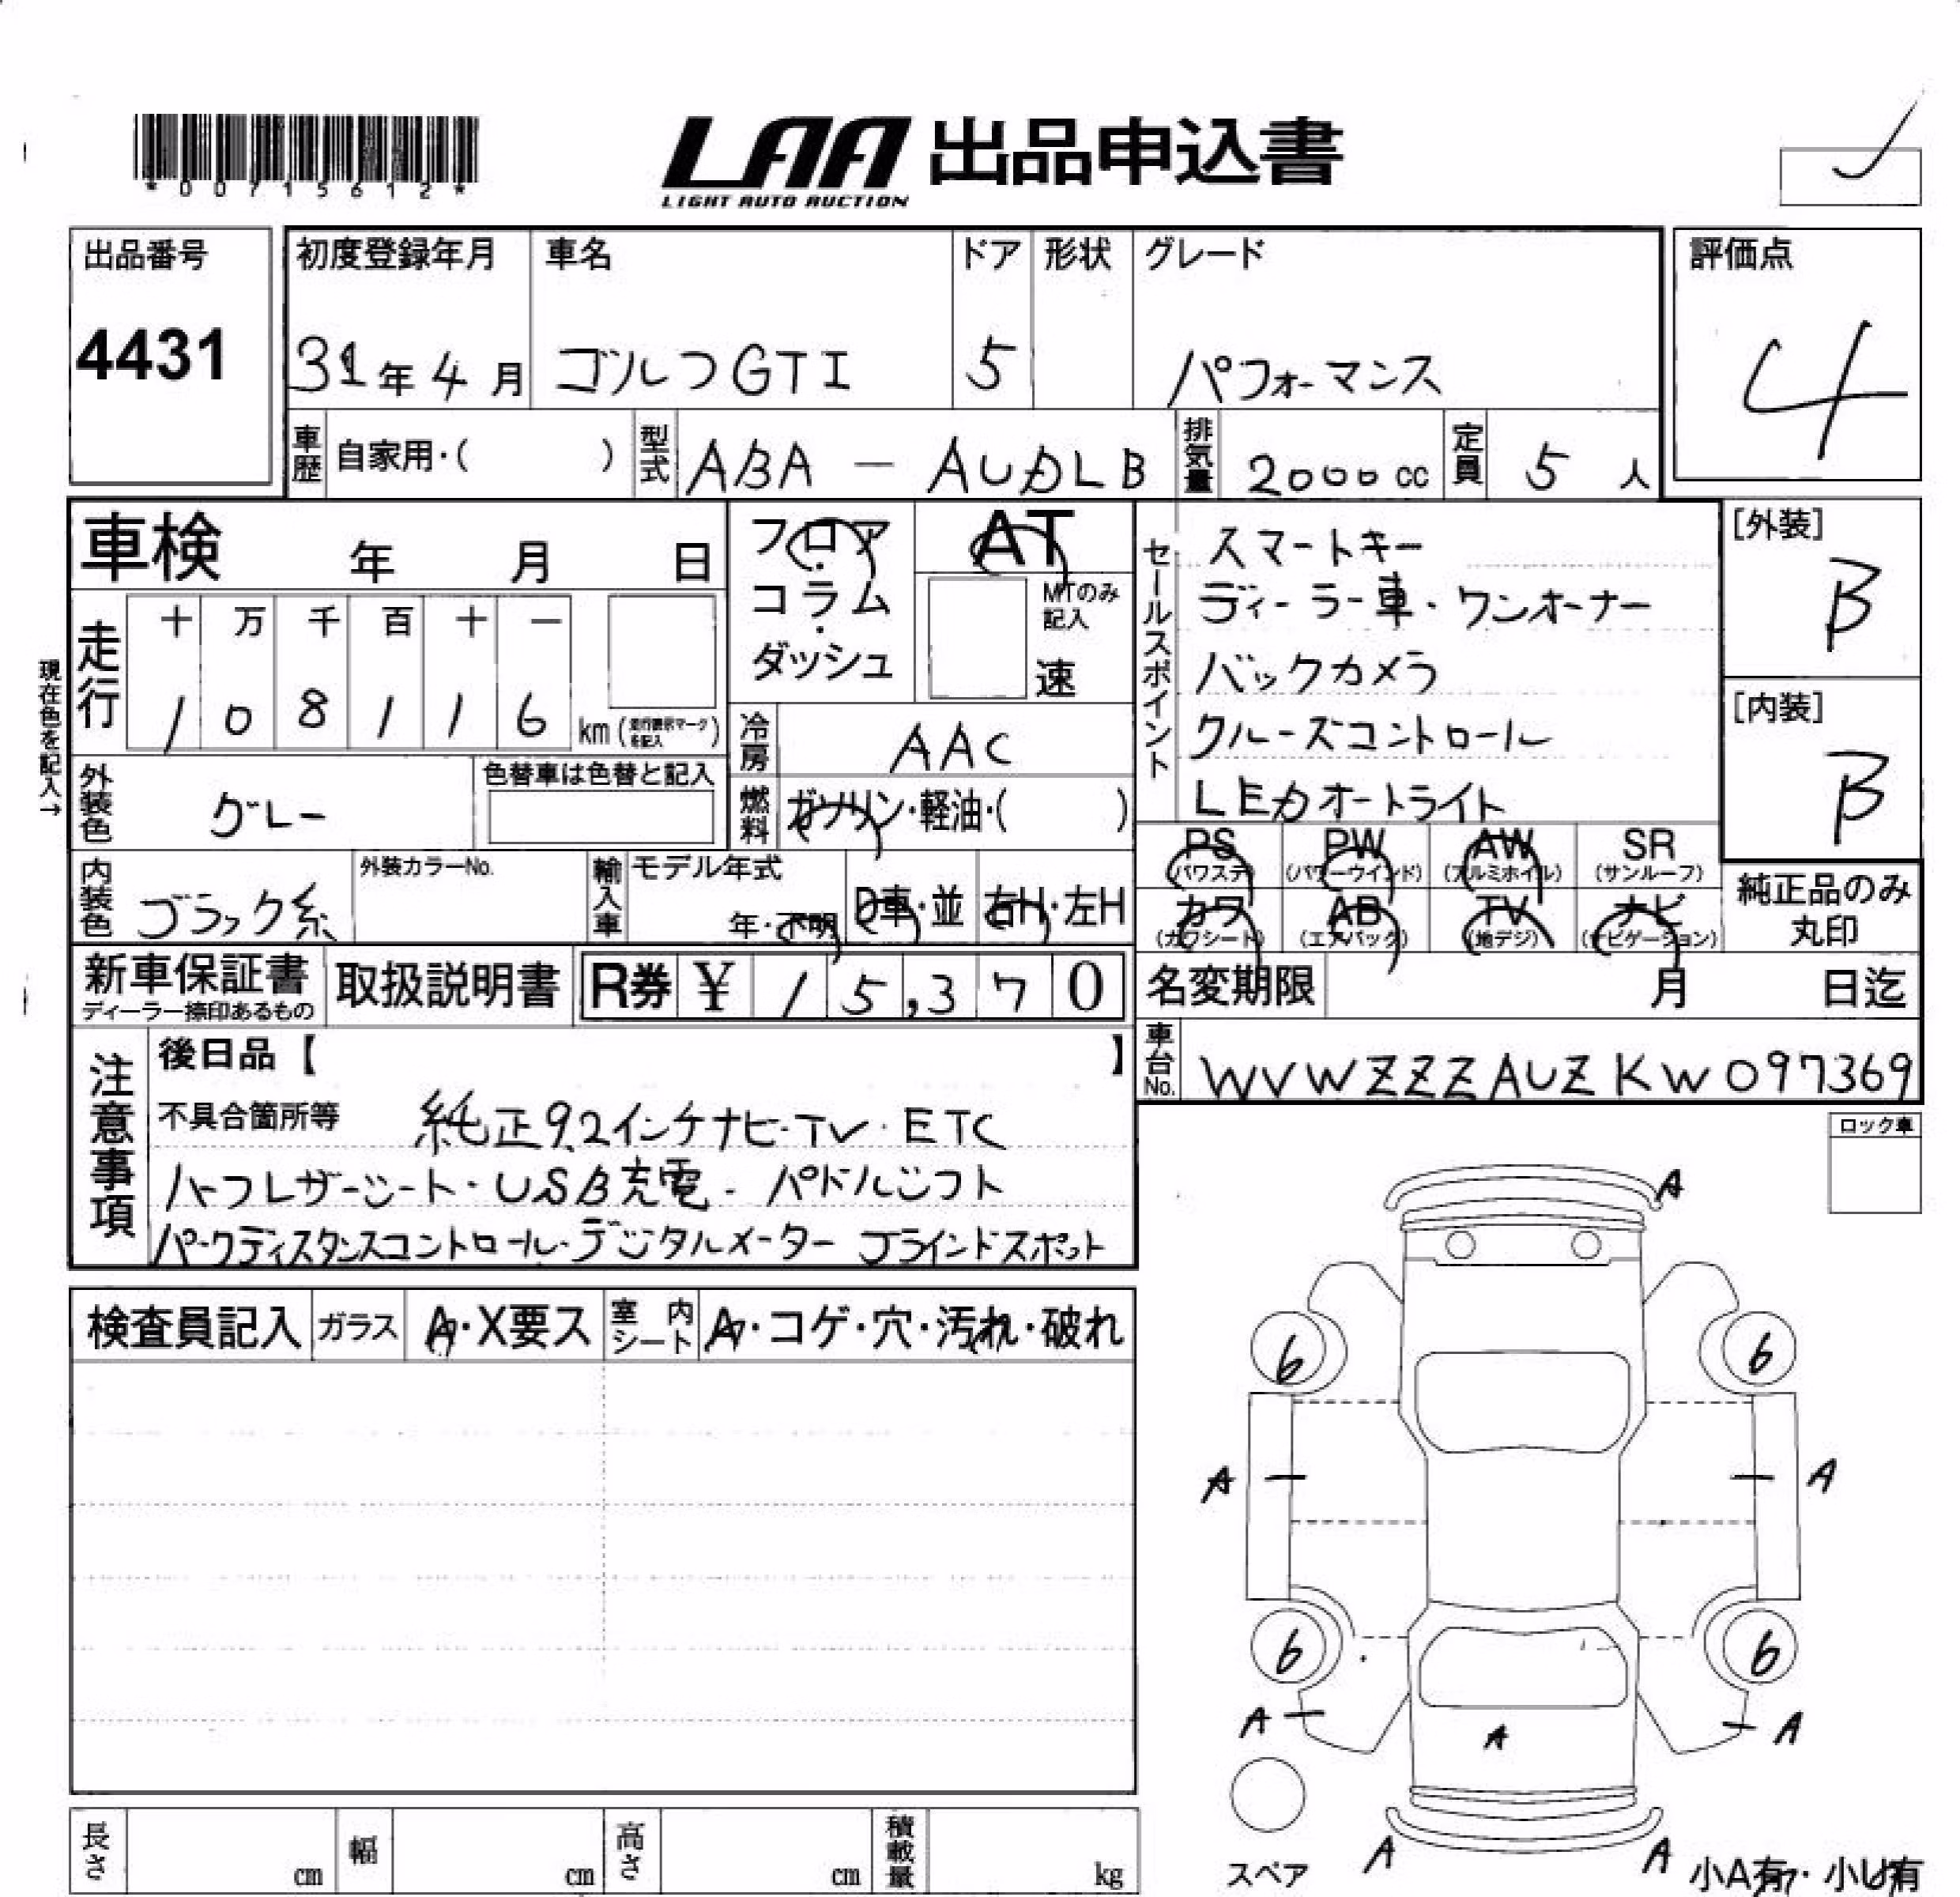 *00715612*
LAA 出品申込書
LIGHT AUTO AUCTION
出品番号
4431
初度登録年月
31年4月
車名
ゴルフGTI
ドア
5
形状
グレード
パフォーマンス
評価点
4
車歴
自家用・( )
型式
ABA - AUDLB
排気量
2000cc
定員
5人
車検 年 月 日
フロア・コラム・ダッシュ
AT
MTのみ記入
速
現在色を記入→
走行
十 万 千 百 十 一
1 0 8 1 1 6
km (走行表示マークを記入)
冷房
AAC
外装色
グレー
色替車は色替と記入
燃料
ガソリン・軽油・( )
セールスポイント
スマートキー
ディーラー車・ワンオーナー
バックカメラ
クルーズコントロール
LEDオートライト
[外装]
B
[内装]
B
PS
(パワステ)
PW
(パワーウインド)
AW
(アルミホイル)
SR
(サンルーフ)
カワ
(カワシート)
AB
(エアバック)
TV
(地デジ)
ナビ
(ナビゲーション)
純正品のみ
丸印
内装色
ブラック系
外装カラーNo.
輸入車
モデル年式
年・不明
D車・並
右H・左H
新車保証書
ディーラー捺印あるもの
取扱説明書
R券 ¥ 15,370
名変期限 月 日迄
車台No.
WVWZZZAUZKW097369
注意事項
後日品【 】
不具合箇所等 純正9.2インチナビ・TV・ETC
ハーフレザーシート・USB充電・パドルシフト
パークディスタンスコントロール・デジタルメーター ブラインドスポット
ロック車
検査員記入
ガラス
A・X要ス
室内シート
A・コゲ・穴・汚れ・破れ
A
6
6
A
A
6
6
A
A
A
A
A
スペア
小A有・小U有
長さ cm
幅 cm
高さ cm
積載量 kg